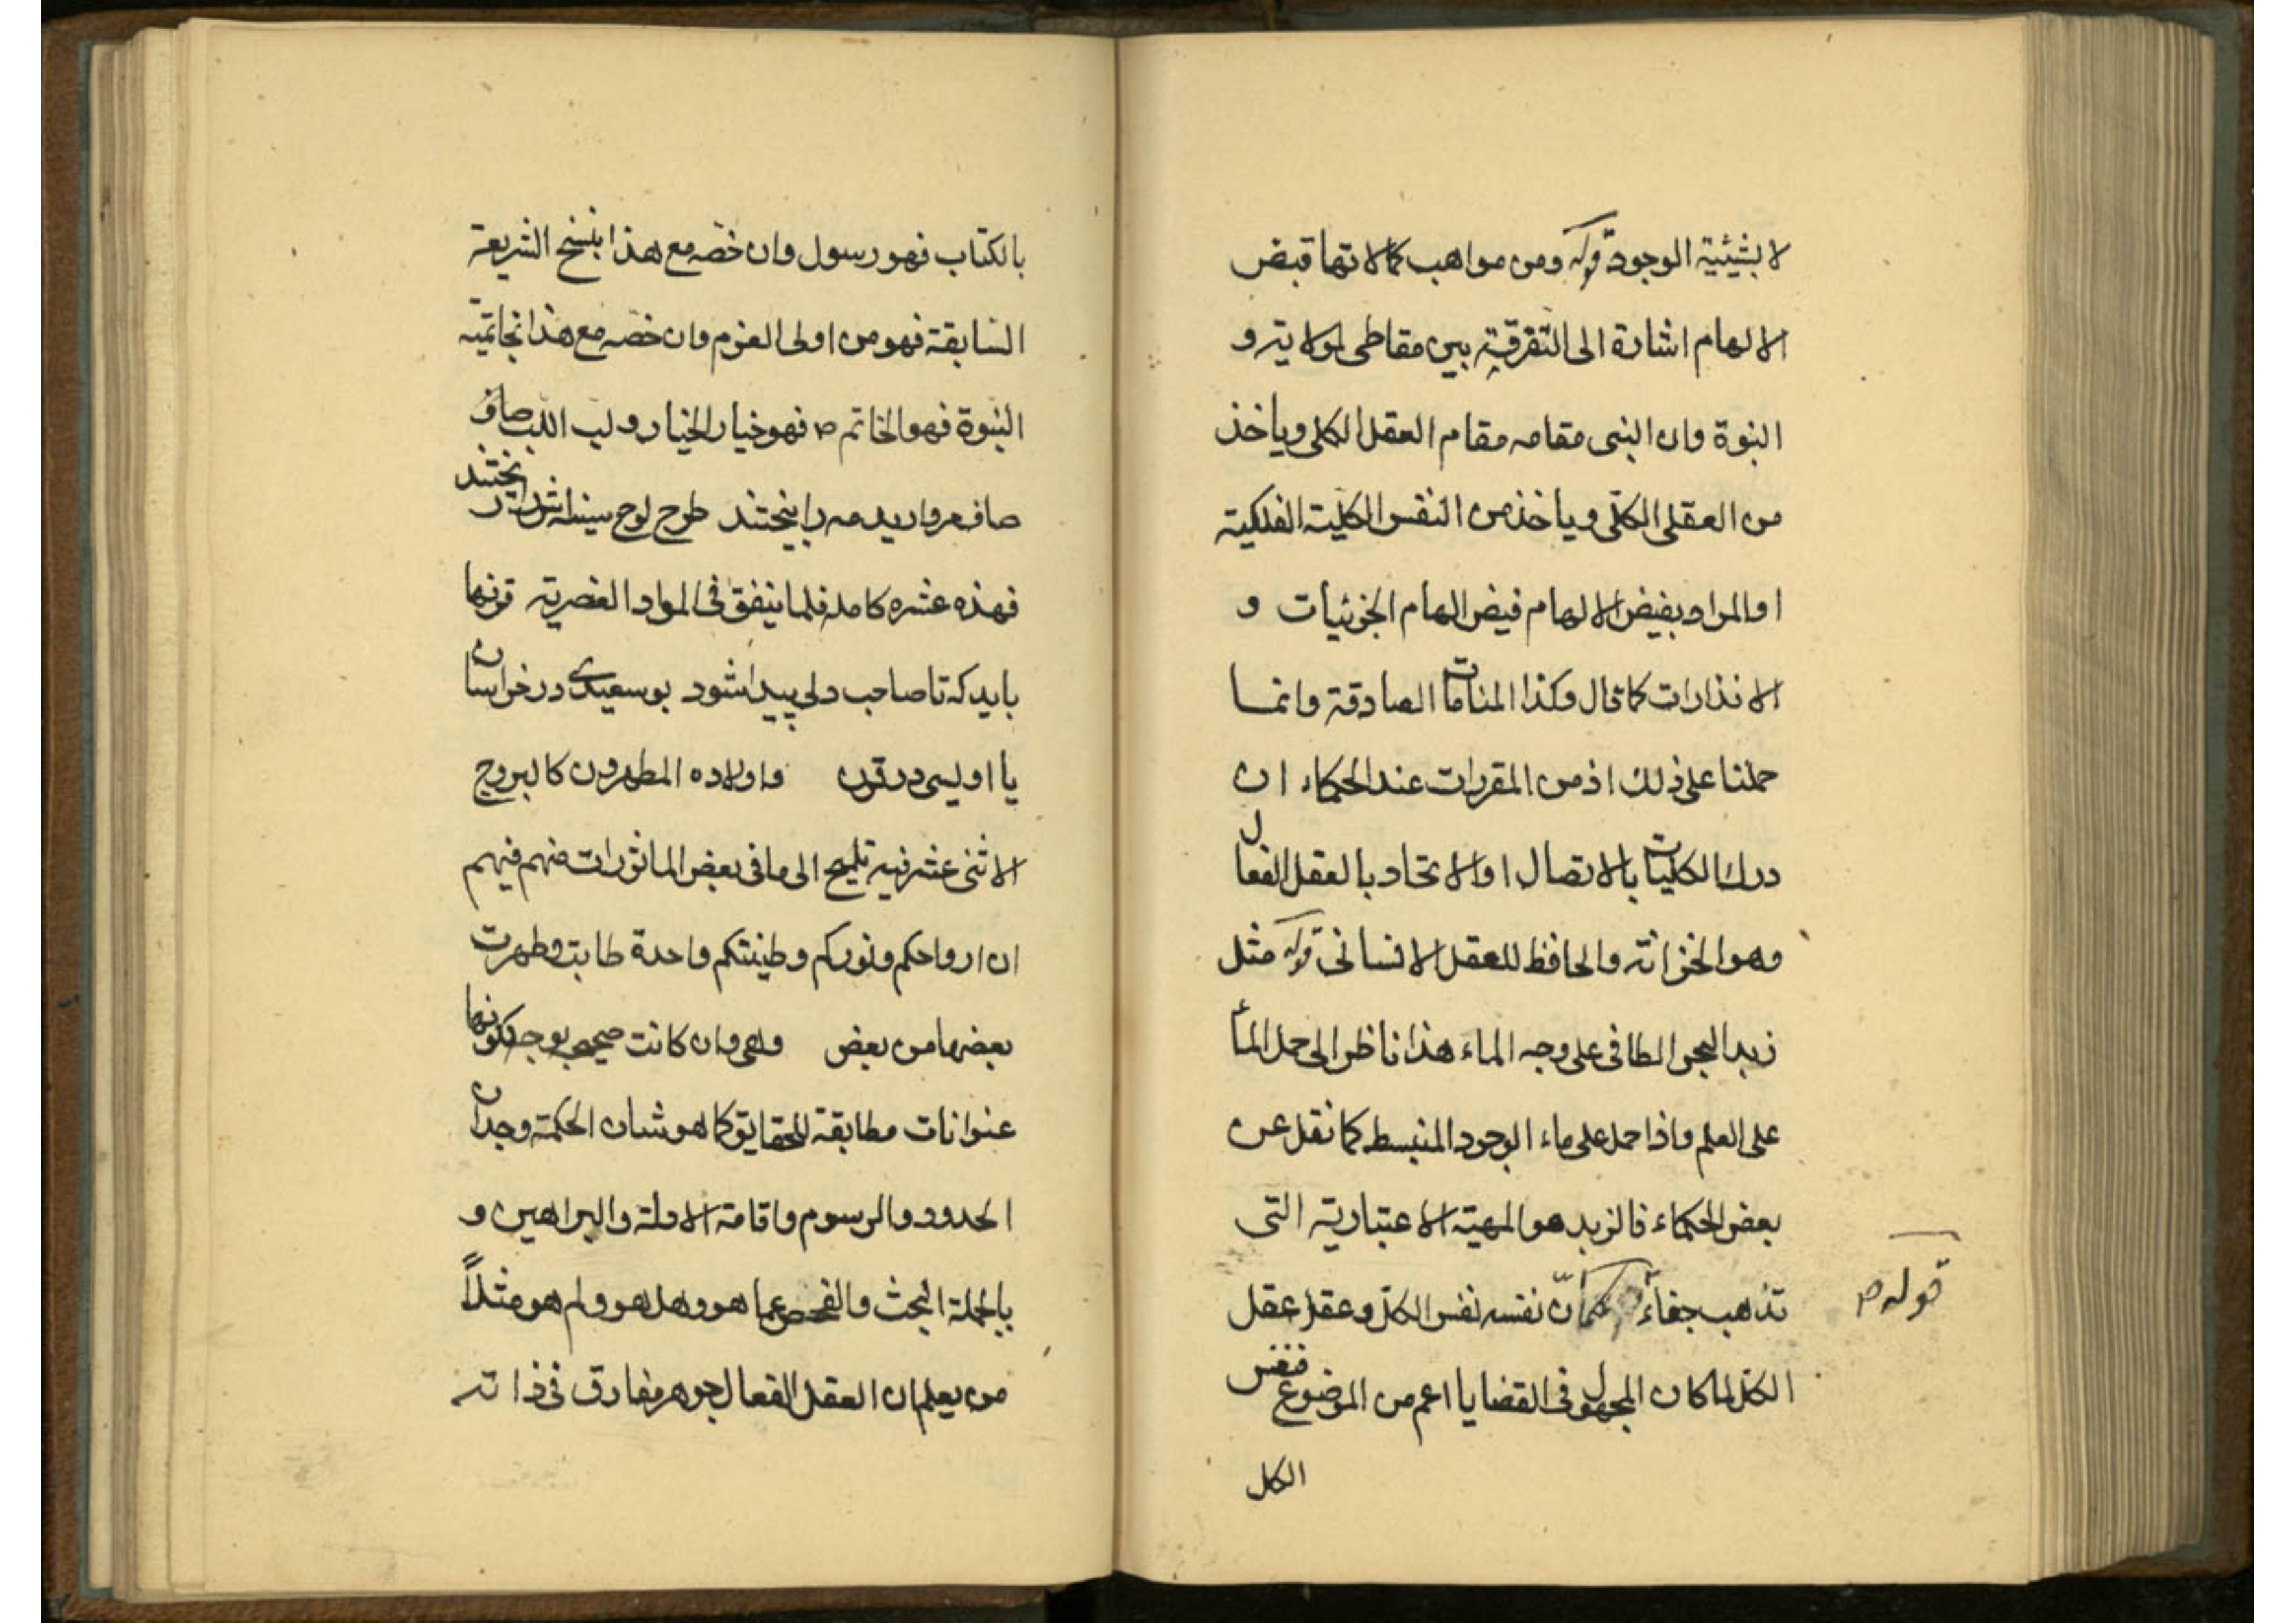 لا بشيئية الوجود قوله ومن مواهب كمالاتها قبض
الالهام اشارة الى التفرقة بين مقاطى لولاية و
النبوة وان النبى مقامه مقام العقل الكلى وياخذ
من العقلى الكلّى وياخذ من النفس الكليّة الفلكية
او المراد بفيض الالهام فيض الهام الجزئيات و
الانذارات كما قال وكذا المنامات الصادقة وانما
حملنا على ذلك اذ من المقررات عند الحكماء ان
درك الكليات بالاتصال او الاتحاد بالعقل الفعال
وهو الخزانة والحافظ للعقل الانسانى قوله مثل
زبد البحر الطافى على وجه الماء هذا ناظر الى حمل الماء
على العلم واذا حمل على ماء الوجود المنبسط كما نقل عن
بعض الحكماء فالزبد هو المهية الاعتبارية التى
تذهب جفاءً كما انّ نفسه نفس الكلّ وعقله عقل
قوله ص
الكلّ لما كان المجهول فى القضايا اعم من الموضوع فنفس
الكل
بالكتاب فهو رسول وان خصّه مع هذا بنسخ الشريعة
السّابقة فهو من اولى العزم وان خصّه مع هذا بخاتميّة
النبوّة فهو الخاتم ص فهو خيار الخيار ولب اللب صاف
صاف مرواريد مه را بيختند طرح لوح سينه اش انگيختند
فهذه عشره كامله فلما يتفق فى المواد العنصرية قرنها
بايد كه تا صاحب دلى پيدا شود بوسعيدى در خراسان
يا اويسى در قرن واولاده المطهرون كالبروج
الاثنى عشر فيه تلميح الى ما فى بعض الماثورات منهم فيهم
ان ارواحكم ونوركم وطينتكم واحدة طابت وطهرت
بعضها من بعض وهى وان كانت صحيحة بوجه لكونها
عنوانات مطابقة للحقايق كما هو شان الحكمة وجدان
الحدود والرسوم واقامة الادلة والبراهين و
بالجملة البحث والفحص عما هو وهل هو ولم هو مثلاً
من يعلم ان العقل الفعال جوهر مفارق فى ذاته